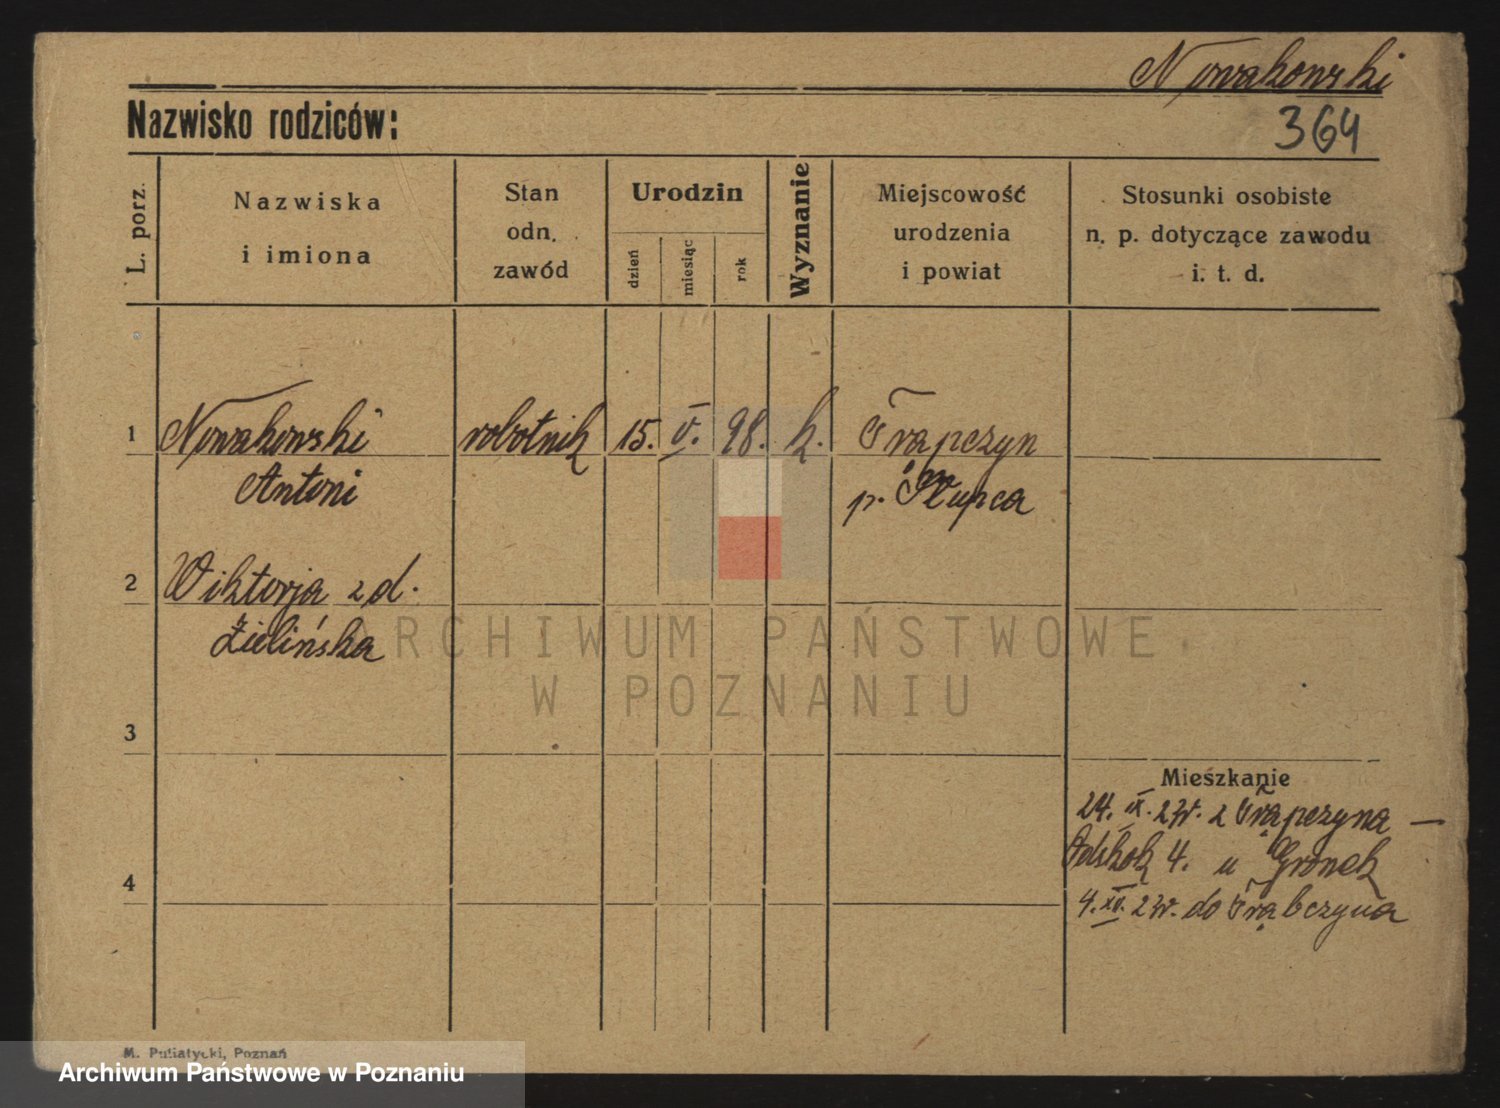 Nowakowski
Nazwisko rodziców:
364
L. porz.
Nazwiska
i imiona
Stan
odn.
zawód
Urodzin
dzień
miesiąc
rok
Wyznanie
Miejscowość
urodzenia
i powiat
Stosunki osobiste
n. p. dotyczące zawodu
i. t. d.
1 Nowakowski robotnik 15. V. 98. k. Trapczyn
Antoni p. Słupca
2 Wiktorja z d.
Zielińska
ARCHIWUM PAŃSTWOWE
W POZNANIU
3
Mieszkanie
24. IX. 2 z Trąpczyna —
4. u Gronek
4
4. 2 do Trąbczyna
M. Putiatycki, Poznań
Archiwum Państwowe w Poznaniu